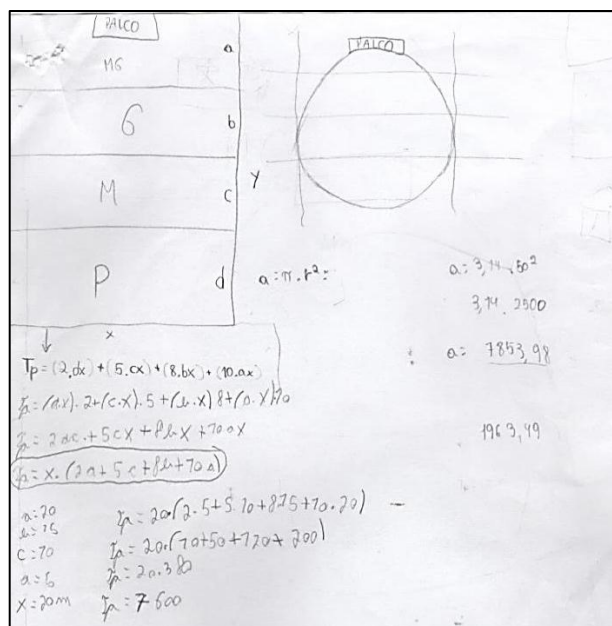 PALCO
MG
a
G
b
M
c
P
d
y
x
PALCO
a = π . r² =
a = 3,14 . 50²
3,14 . 2500
a = 7853,98
1963,49
Tp = (2.dx) + (5.cx) + (8.bx) + (10.ax)
Tp = (d.x).2 + (c.x).5 + (b.x)8 + (a.x)10
Tp = 2dx + 5cx + 8bx + 10ax
Tp = x . (2d + 5c + 8b + 10a)
a = 20
b = 15
c = 10
d = 5
x = 20m
Tp = 20.(2.5 + 5.10 + 8.15 + 10.20)
Tp = 20.(10 + 50 + 120 + 200)
Tp = 20.380
Tp = 7600